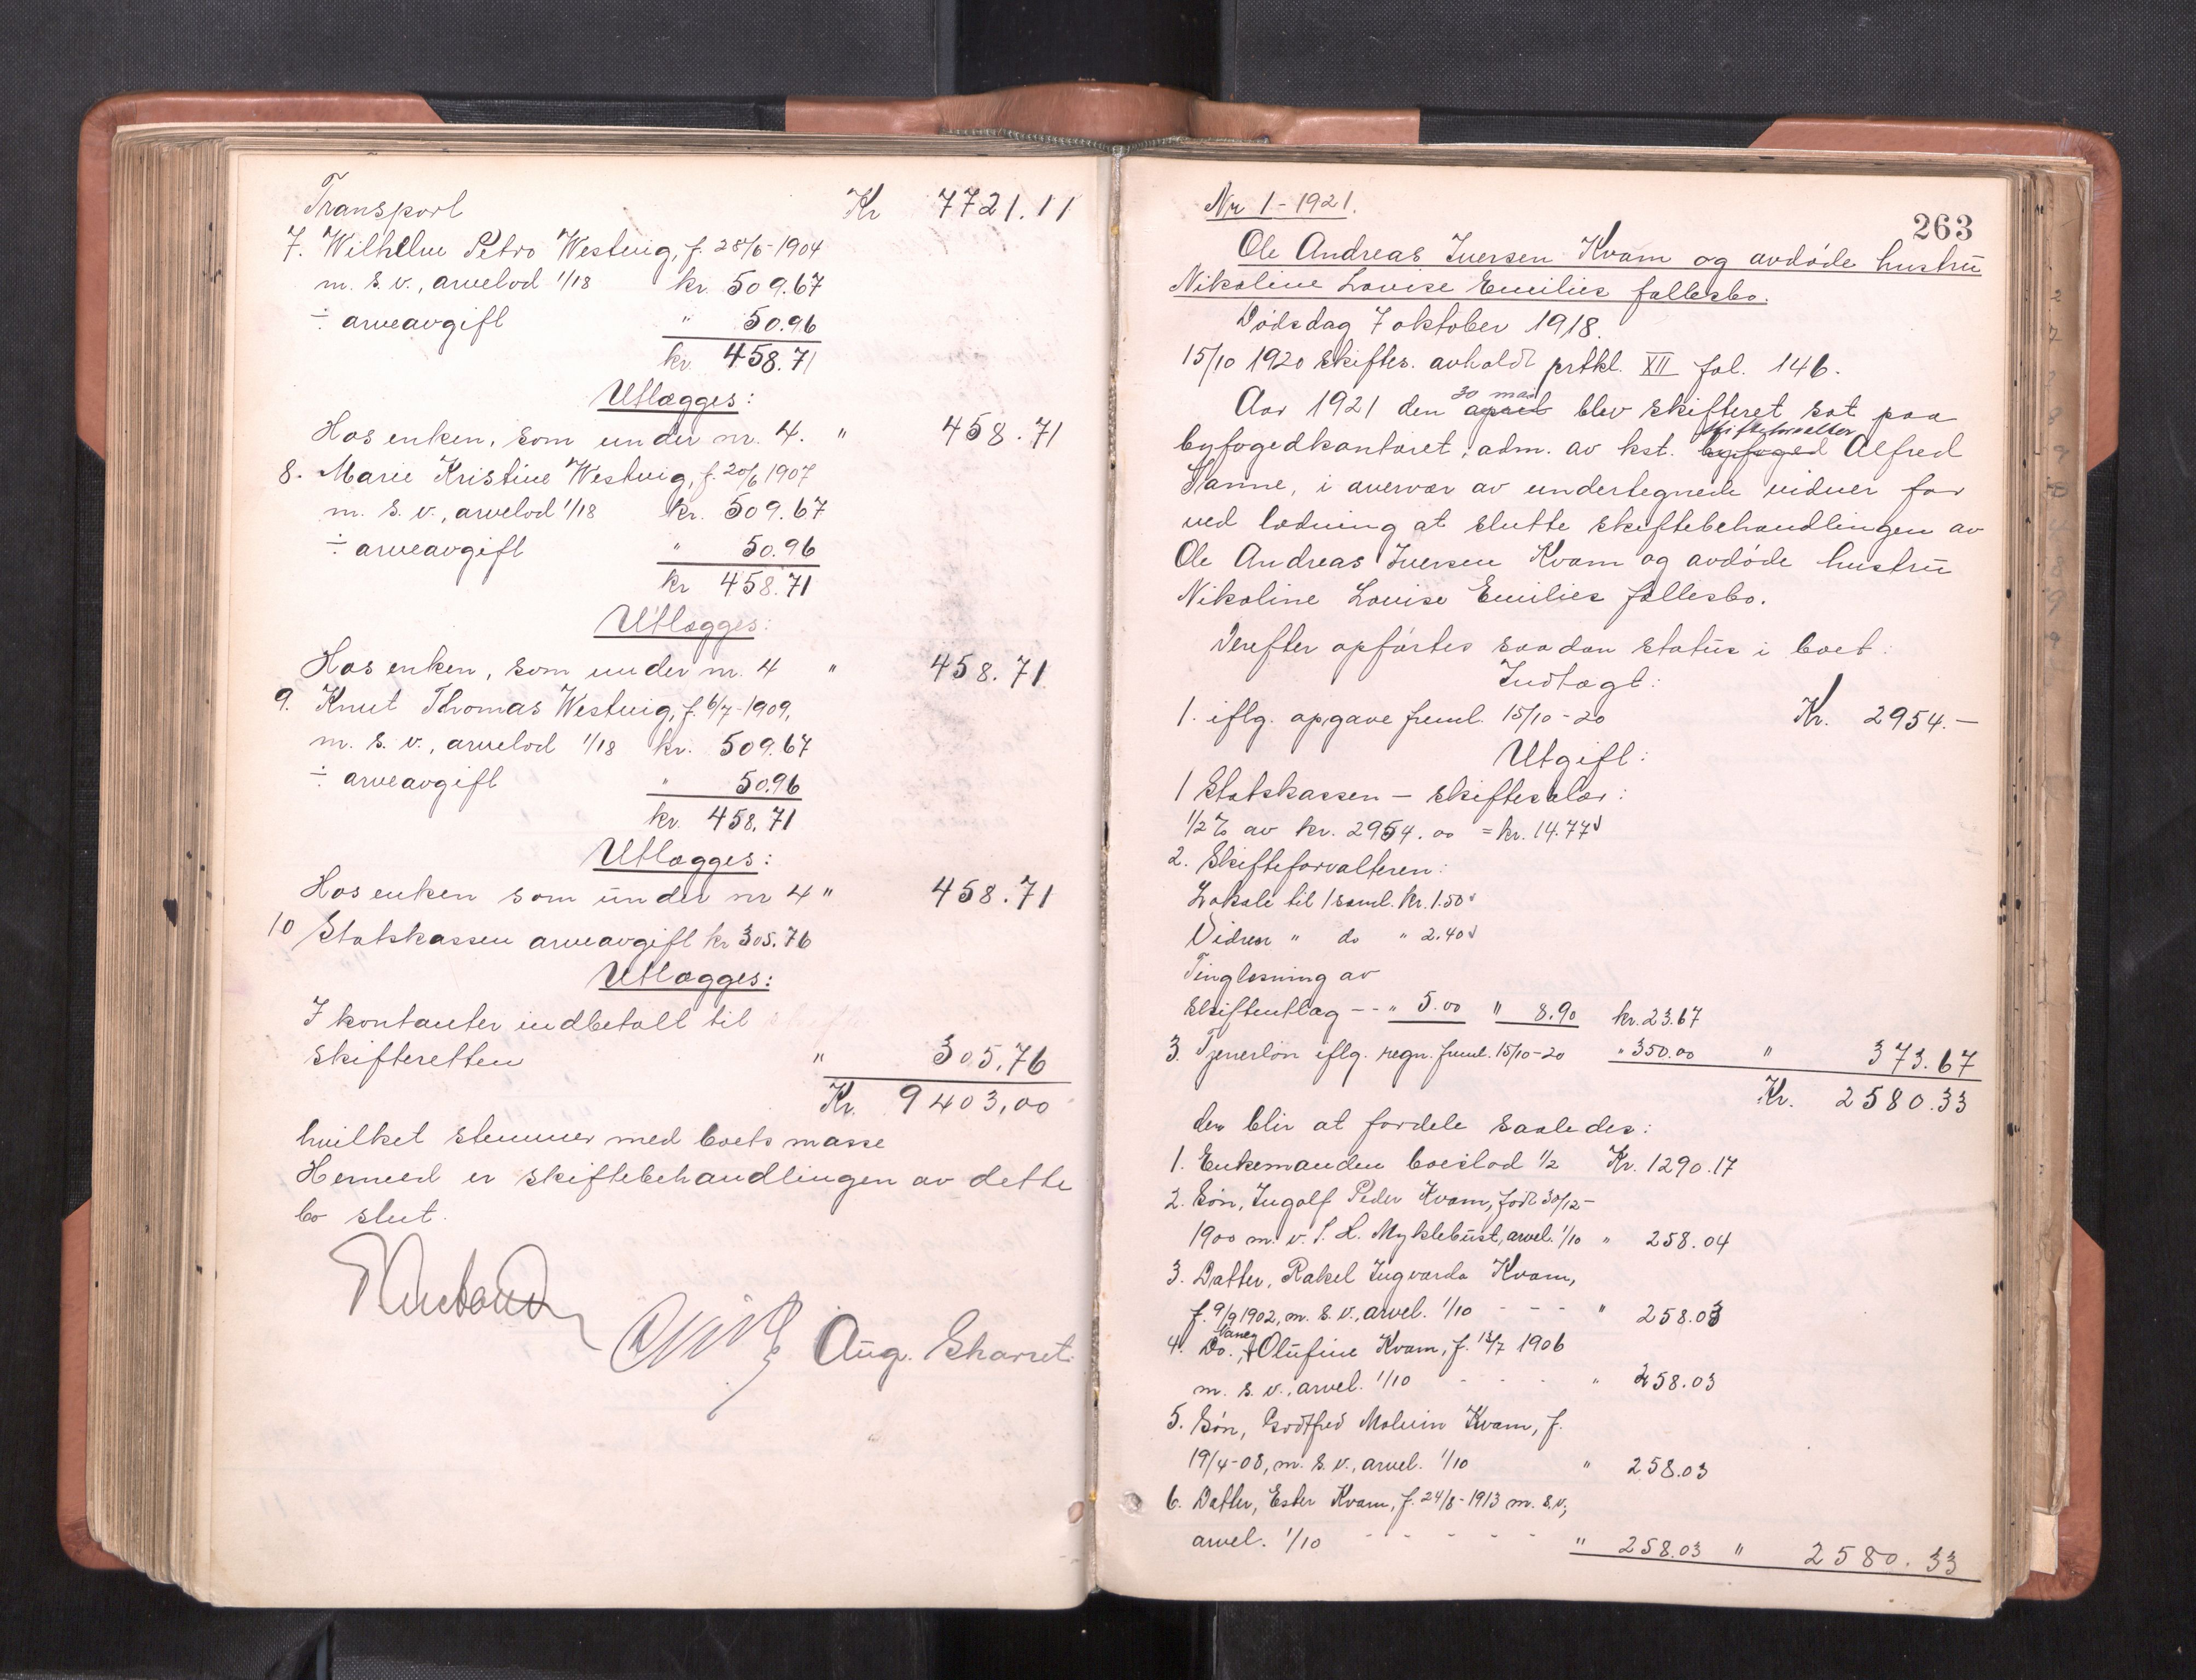 Transport Kr 7721.11
7. Wilhelm Petro Westvig, f. 28/6-1904
m. s. v., arvelod 1/18 kr. 509.67
÷ arveavgift " 50.96
kr. 458.71
Utlægges:
Hos enken, som under nr. 4. " 458.71
8. Marie Kristine Westvig, f. 20/6 1907
m. s. v., arvelod 1/18 kr. 509.67
÷ arveavgift " 50.96
kr 458.71
Utlægges:
Hos enken, som under nr. 4 " 458.71
9. Knut Thomas Westvig, f. 6/7-1909,
m. s. v., arvelod 1/18 kr. 509.67
÷ arveavgift " 50.96
kr. 458.71
Utlægges:
Hos enken som under nr 4 " 458.71
10 Statskassen arveavgift kr 305.76
Utlægges:
I kontanter indbetalt til
skifteretten " 305.76
Kr. 9403,00
hvilket stemmer med boets masse
Hermed er skiftebehandlingen av dette
bo slut.
Aug. Skarret
Nr 1-1921.
263
Ole Andreas Iversen Kvam og avdøde hustru
Nikoline Lovise Emilies fællesbo.
Dødsdag 7 oktober 1918.
15/10 1920 skiftes. avholdt prtkl. XII fol. 146.
30 mai
Aar 1921 den april blev skifteret sat paa
skifteforvalter
byfogedkontoret, adm. av kst. byfoged Alfred
Hanne, i overvær av undertegnede vidner for
ved lodning at slutte skiftebehandlingen av
Ole Andreas Iversen Kvam og avdøde hustru
Nikoline Lovise Emilies fællesbo.
Derefter opførtes saadan status i boet:
Indtægt:
1. iflg. opgave freml. 15/10-20 Kr. 2954.—
Utgift:
1 Statskassen — skiftesalær:
1/2 % av kr. 2954.00 = kr. 14.77
2. Skifteforvalteren:
Lokale til 1 saml. kr. 1.50
Vidner " do " 2.40
Tinglæsning av
skifteutlæg -- " 5.00 " 8.90 kr. 23.67
3. Tjenerløn iflg. regn. freml. 15/10-20 " 350.00 " 373.67
Kr. 2580.33
der blir at fordele saaledes:
1. Enkemanden boeslod 1/2 Kr. 1290.17
2. Søn, Ingolf Peder Kvam, født 30/12-
1900 m. v. S. L. Myklebust, arvel. 1/10 " 258.04
3. Datter, Rakel Ingvarda Kvam,
f. 9/9 1902, m. s. v., arvel. 1/10 - - - " 258.03
4. Do., Olufine Kvam, f. 13/7 1906
m. s. v., arvel. 1/10 - - - " 258.03
5. Søn, Godtfred Molvin Kvam, f.
19/4-08, m. s. v., arvel. 1/10 " 258.03
6. Datter, Ester Kvam, f. 24/8-1913 m. s. v.,
arvel. 1/10 - - - - - " 258.03 " 2580.33